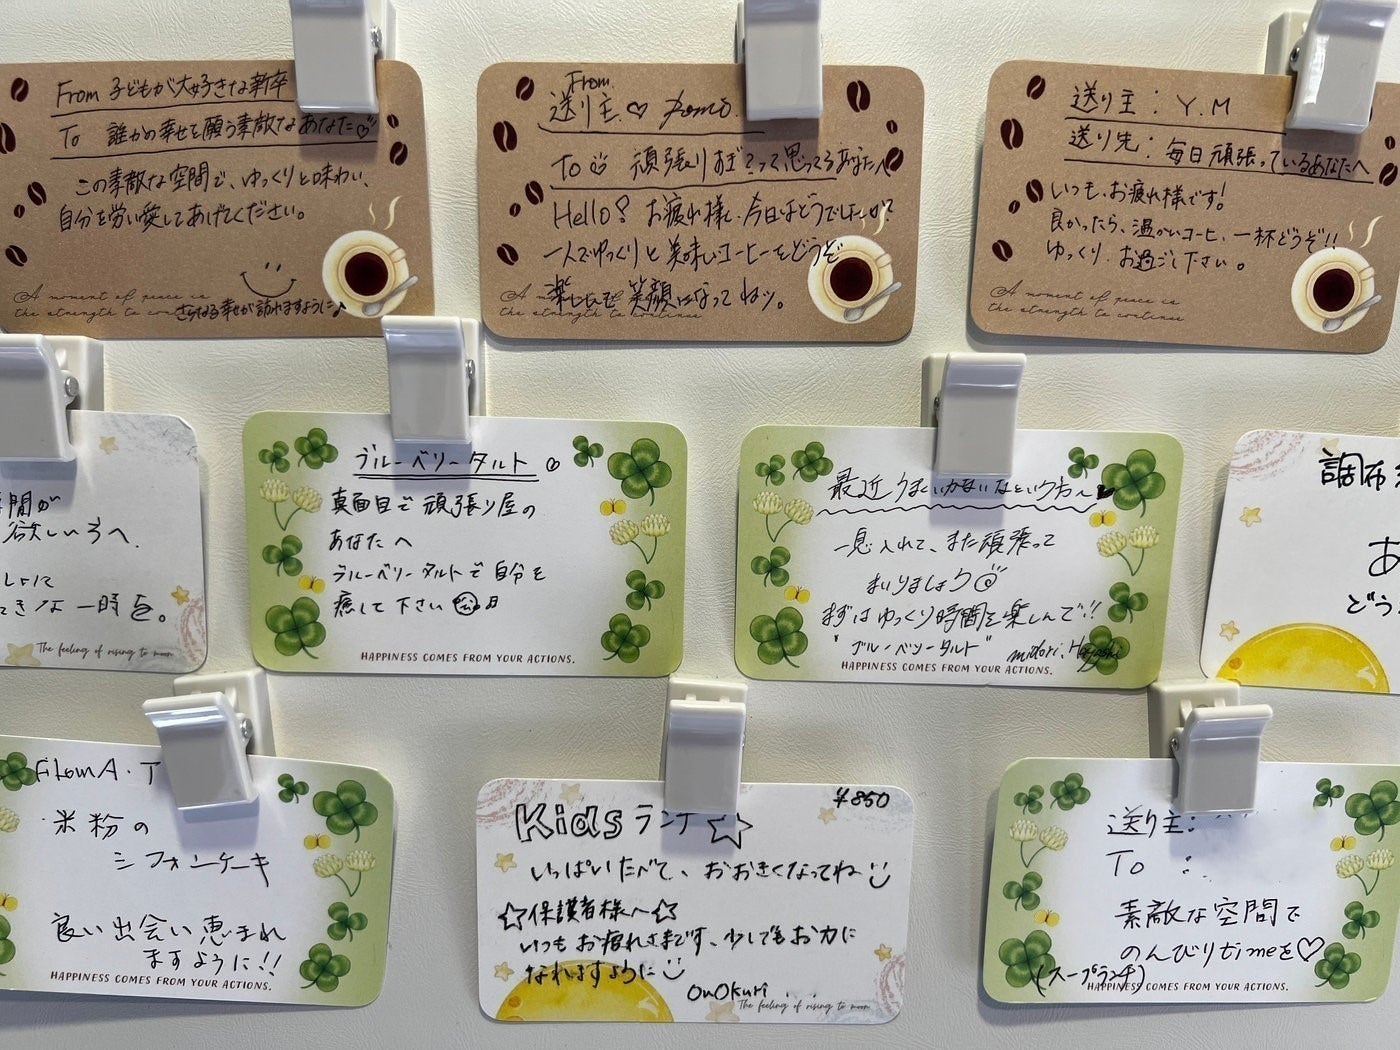 From 子どもが大好きな新卒
To 誰かの幸せを願う素敵なあなた♡
この素敵な空間で、ゆっくりと味わい、
自分を労い愛してあげてください。
A moment of peace is
the strength to
さらなる幸せが訪れますように♪
From
送り主♡
To 頑張りすぎ?って思ってるあなたへ
Hello! お疲れ様、今日はどうでしたか?
一人でゆっくりと美味しいコーヒーをどうぞ
楽しんで笑顔になってねッ。
the strength to continue
送り主:Y.M
送り先:毎日頑張っているあなたへ
いつも、お疲れ様です!
良かったら、温かいコーヒー、一杯どうぞ!!
ゆっくり、お過ごし下さい。
A moment of peace is
the strength to continue
間が
欲しい方へ
一時を。
The feeling of rising to moon
ブルーベリータルト
真面目で頑張り屋の
あなたへ
ブルーベリータルトで自分を
癒して下さい♬
HAPPINESS COMES FROM YOUR ACTIONS.
最近うまくいかないなという方へ
一息入れて、また頑張って
まいりましょう
まずはゆっくり時間を楽しんで!!
"ブルーベリータルト"
midori.
HAPPINESS COMES FROM YOUR ACTIONS.
調布
あ
どう
From A・T
米粉の
シフォンケーキ
良い出会い恵まれ
ますように!!
HAPPINESS COMES FROM YOUR ACTIONS.
¥850
Kidsランチ☆
いっぱいたべて、おおきくなってね
☆保護者様へ☆
いつもお疲れさまです、少しでもお力に
なれますように
OnOkuri
The feeling of rising to moon
送り主:
To :
素敵な空間で
のんびりtimeを♡
(スープランチ)
HAPPINESS COMES FROM YOUR ACTIONS.